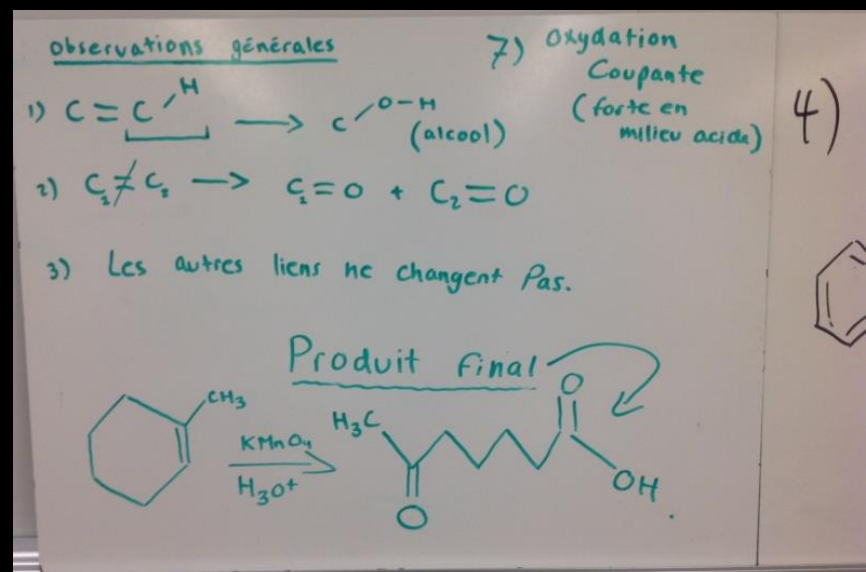 observations générales
7) Oxydation
Coupante
(forte en
milieu acide)
1) C = C H → C O-H
(alcool)
2) C₁ ≠ C₂ → C₁=O + C₂=O
3) Les autres liens ne changent Pas.
Produit final
CH₃
KMnO₄
H₃O⁺
H₃C
O
O
OH
4)